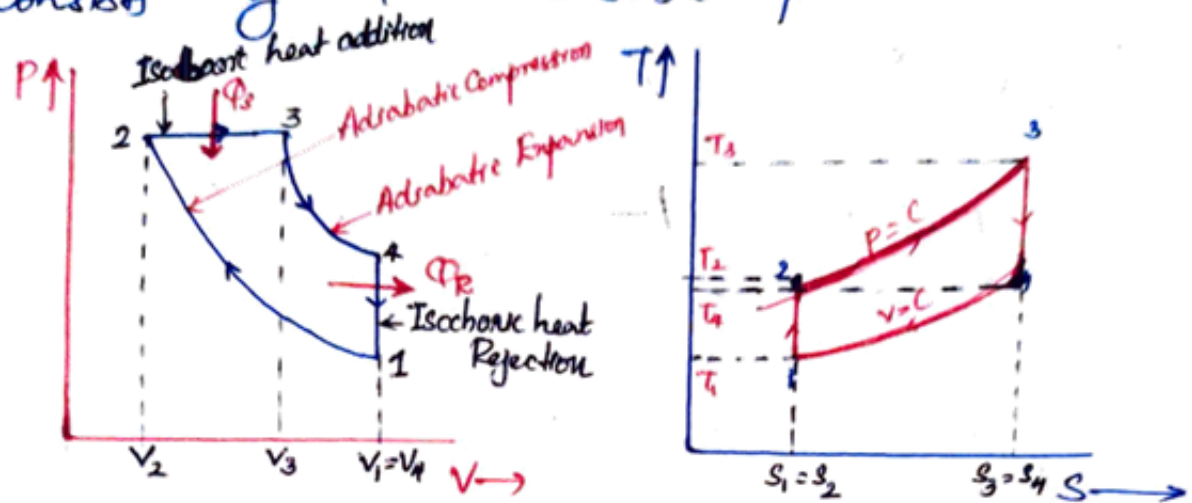 consists
Isobaric heat addition
P↑
Φs
Adiabatic Compression
2
3
Adiabatic Expansion
4
ΦR
Isochoric heat
Rejection
1
V2
V3
V1=V4
V→
T↑
T3
3
P=C
T2
2
T4
V=C
T1
1
S1=S2
S3=S4
S→